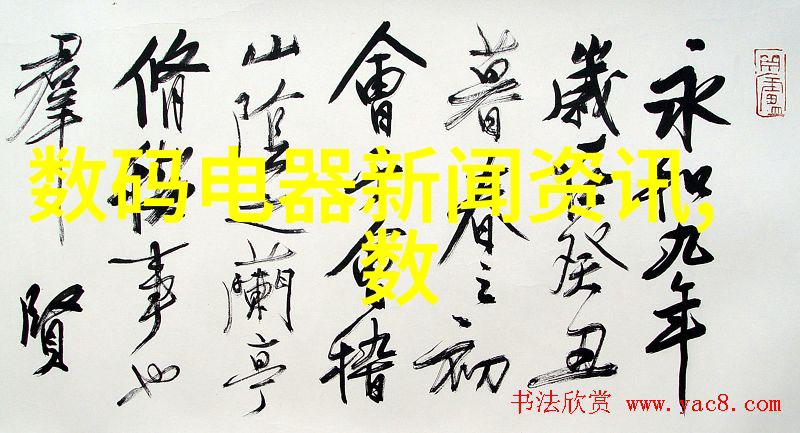 永和九年
歲在癸丑
暮春之初
會于會稽
山陰之蘭亭
脩稧事也
羣賢
数码电器新闻资讯,
数
书法欣赏 www.yac8.com